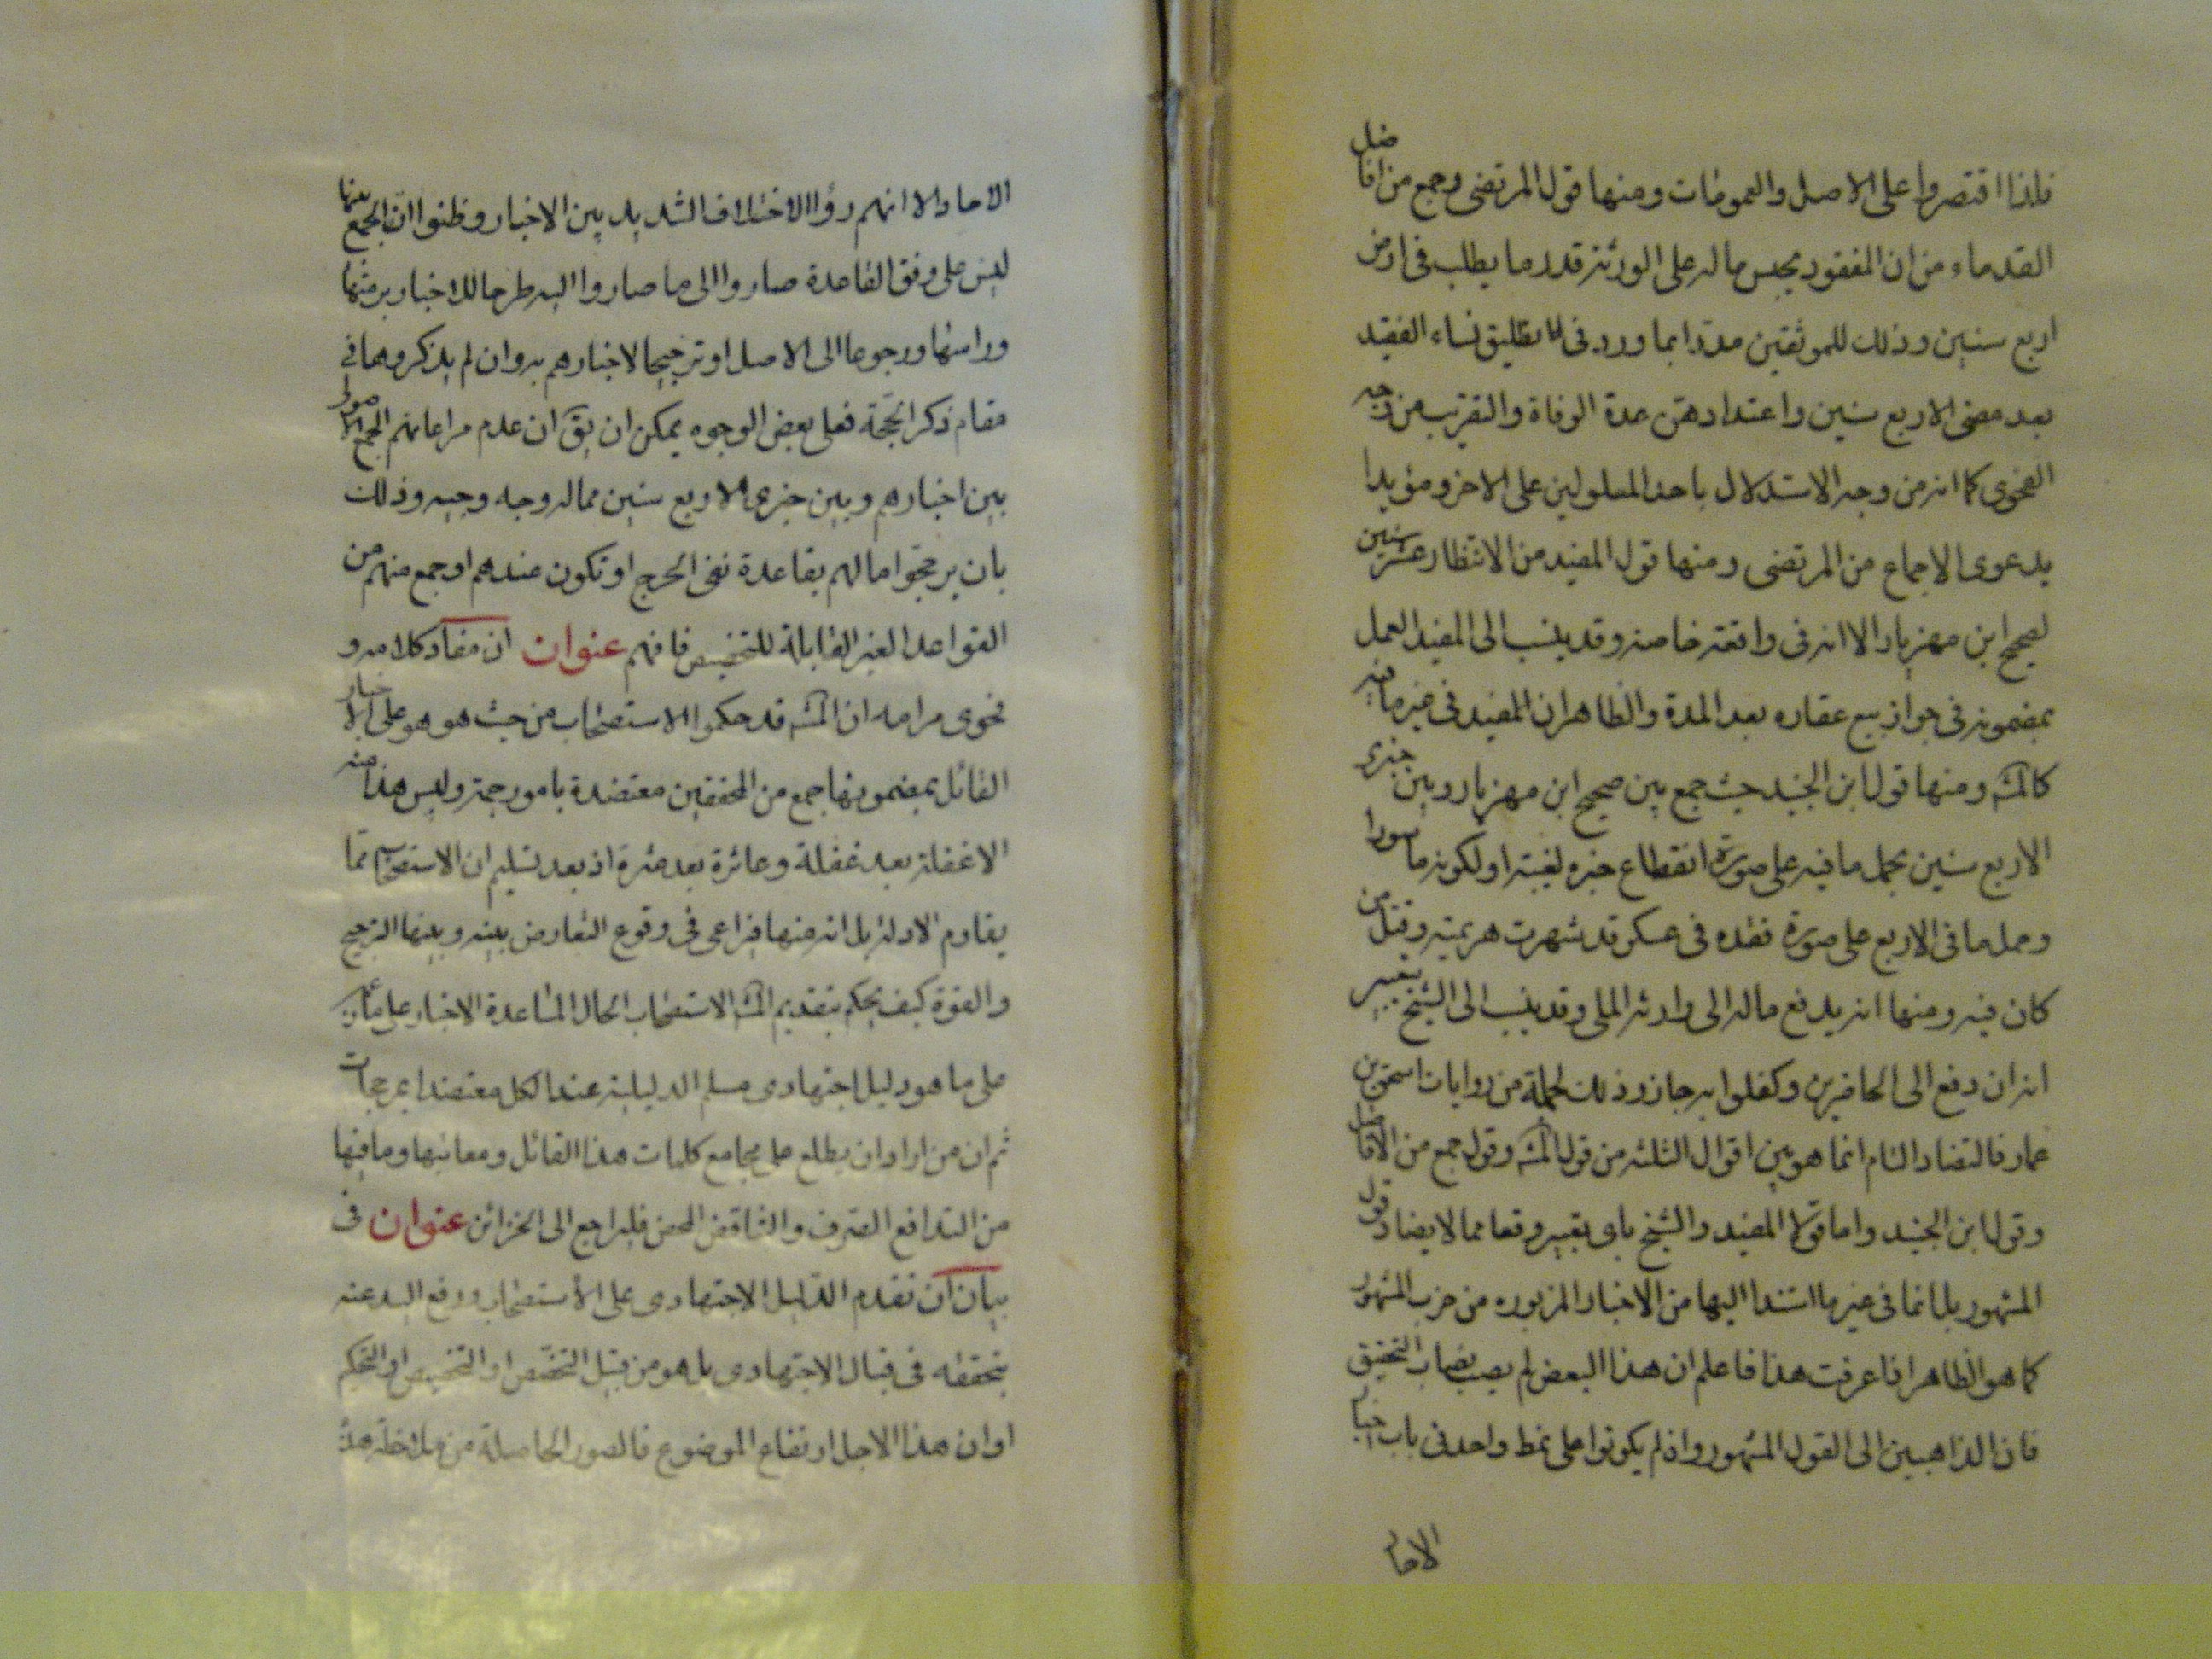 فلذا اقتصروا على الاصل والعمومات ومنها قول المرتضى وجمع من افاضل
القدماء من ان المفقود يحبس ماله على الورثة قدر ما يطلب فى ارض
اربع سنين وذلك للموثقين مدتدا بما ورد فى تطليق نساء الفقيد
بعد مضى الاربع سنين واعتدادهن عدة الوفاة والتقريب من وجه
الفحوى كما انه من وجه الاستدلال باحد المعلولين على الاخر ومؤيدا
بدعوى الاجماع من المرتضى ومنها قول المفيد من الانتظار عشر سنين
لصحيح ابن مهزيار الا انه فى واقعة خاصة وقد ينسب الى المفيد العمل
بمضمونه فى جواز بيع عقاره بعد المدة والظاهر ان المفيد فى غير ما فيه
كالمشه ومنها قول ابن الجنيد حيث جمع بين صحيح ابن مهزيار وبين خبرى
الاربع سنين بحمل ما فيه على صورة انقطاع خبره لغيبته او لكونه ماسورا
وحمل ما فى الاربع على صورة فقده فى عسكر قد شهرت هزيمته وقتل من
كان فيه ومنها انه يدفع ماله الى وارثه الملى وقد ينسب الى الشيخ بتغيير
انه ان دفع الى الحاضرين وكفلوا به جاز وذلك لجملة من روايات اسحق بن
عمار فالتضاد التام انما هو بين اقوال الثلثه من قول المشه وقول جمع من الافاضل
وقول ابن الجنيد واما قولا المفيد والشيخ باى تعبير وقعا مما لا يضاد قول
المشهور بل انما فى غير ما استندا اليها من الاخبار المزبوره من حزب المشهور
كما هو الظاهر اذا عرفت هذا فاعلم ان هذا البعض لم يصب نصاب التحقيق
فان الذاهبين الى القول المشهور واذ لم يكونوا على نمط واحد فى باب اخبار
الاحاد
الاحاد الا انهم رؤا الاختلاف الشديد بين الاخبار وظنوا ان الجمع بينها
ليس على وفق القاعدة صاروا الى ما صاروا اليه طرحا للاخبار برمتها
وراسها ورجوعا الى الاصل او ترجيحا لاخبارهم به وان لم يذكروهما فى
مقام ذكر الحجة فعلى بعض الوجوه يمكن ان يق ان عدم مراعاتهم الجمع الاصولى
بين اخبارهم وبين خبرى الاربع سنين مما له وجه وجيه وذلك
بان يرجحوا ما لهم بقاعدة نفى الحرج او تكون عندهم او جمع منهم من
القواعد الغير القابلة للتخصيص فافهم عنوان ان مفاد كلامه و
فحوى مرامه ان المشه قد حكموا الاستصحاب من حيث هو هو على الاخبار
القائل بمضمونها جمع من المحققين معتضدة بامور جمة وليس هذا منه
الا غفلة بعد غفلة وعاثرة بعد عثرة اذ بعد تسليم ان الاستصحاب مما
يقاوم الادلة بل انه منها فيراعى فى وقوع التعارض بينه وبينها الترجيح
والقوة كيف يحكم بتقديم المشه الاستصحاب الحال المساعدة الاخبار على
على ما هو دليل اجتهادى مسلم الدليلية عند الكل معتضدا بمرجحات
ثم ان من اراد ان يطلع على مجامع كلمات هذا القائل ومعانيها وما فيها
من التدافع الصرف والتناقض المحض فليراجع الى الخزائن عنوان فى
بيان ان تقدم الدليل الاجتهادى على الاستصحاب ورفع اليد عنه
بتحققه فى قبال الاجتهادى بل هو من قبيل التخصص او التخصيص او التحكيم
او ان هذا الاجل ارتفاع الموضوع فالصور الحاصلة من ملاحظة هذ